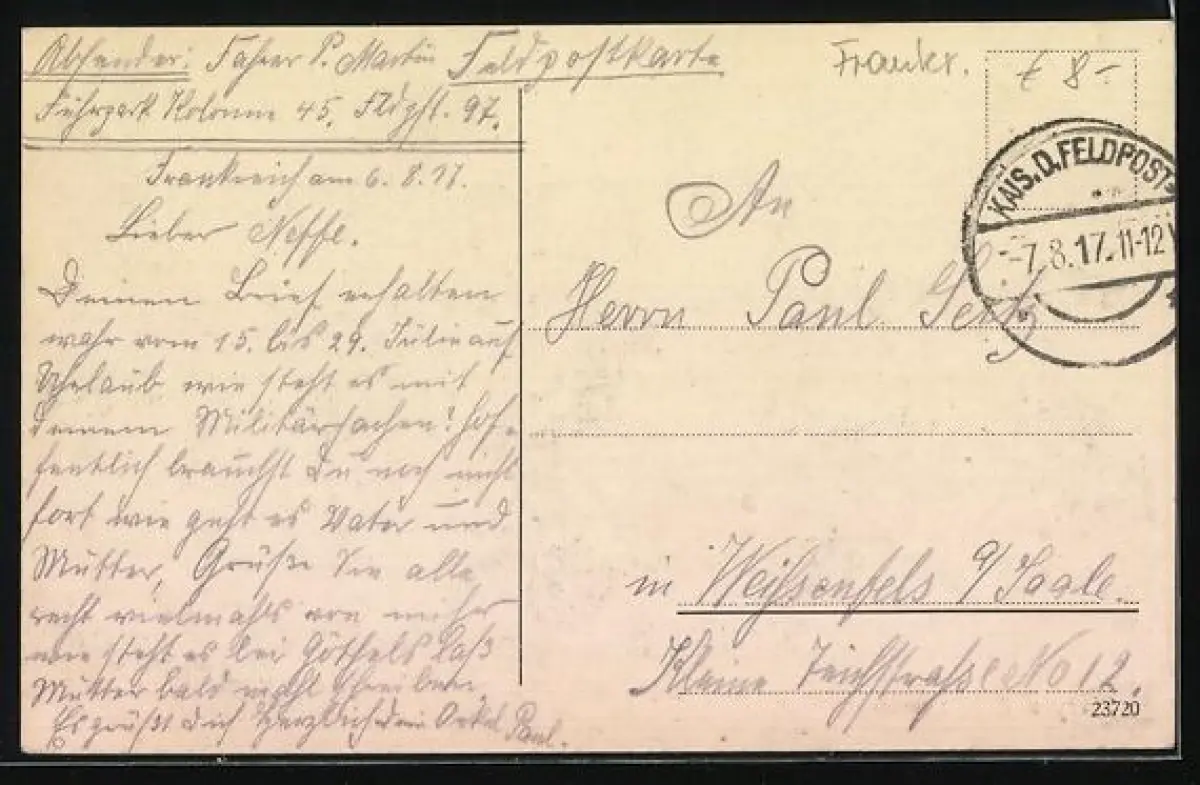 Absender: Fahrer P. Martin Feldpostkarte
Fuhrpark Kolonne 45. Fldpst. 97.
Frankreich am 6.8.17.
Lieber Neffe.
Deinen Brief erhalten
wahr vom 15. bis 29. Juli auf
Uhrlaub wie steht es mit
deinem Militärsachen? hof-
fentlich brauchst Du noch nicht
fort wie geht es Vater und
Mutter, Grüße Sie alle
recht vielmahls von mihr
wie steht es bei Göthels laß
Mutter bald mahl schreiben.
Es grüßt dich herzlich dein Onkel Paul.
Frankr.
€ 8-
KAIS. D. FELDPOST
-7.8.17. 11-12 V
An
Herrn Paul Seitz
in Weißenfels a/Saale.
Kleine Teichstraße No 12.
23720